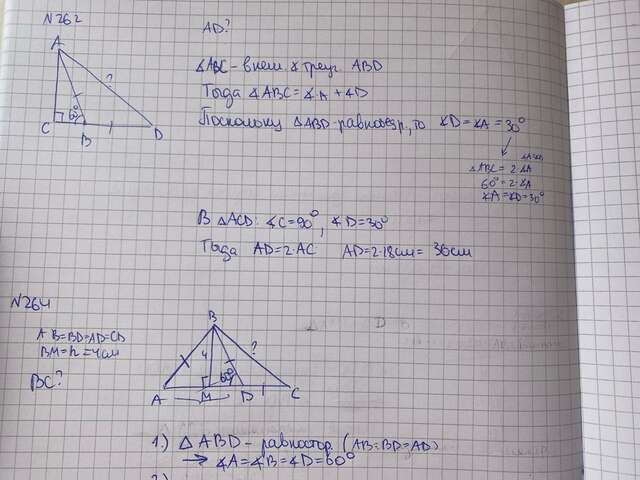 N262
AD?
A
?
∡ABC - внеш. ∡ треуг. ABD
Тогда ∡ABC = ∡A + ∡D
Поскольку △ABD - равнобедр, то ∡D = ∡A = 30°
60°
C
B
D
∡ABC = 2·∡A
60° = 2·∡A
∡A = ∡D = 30°
В △ACD: ∡C = 90°, ∡D = 30°
Тогда AD = 2·AC AD = 2·18см = 36см
N264
AB=BD=AD=CD
BM = h = 4см
BC?
B
4
?
60°
A
M
D
C
1.) △ABD - равностор. (AB=BD=AD)
→ ∡A = ∡B = ∡D = 60°